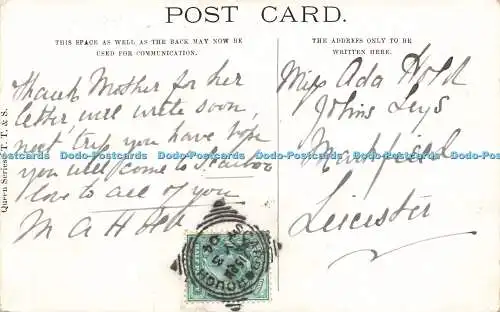 POST CARD.
THIS SPACE AS WELL AS THE BACK MAY NOW BE
USED FOR COMMUNICATION.
THE ADDRESS ONLY TO BE
WRITTEN HERE.
Thank Mother for her
letter will write soon,
next trip you have hope
you will come to Scarboro
love to all of you
M A Hold
Miss Ada Hold
Johns Leys
Markfield
Leicester
Queen Series T. T. & S.
Dodo-Postcards Dodo-Postcards Dodo-Postcards Dodo-Postcards Dodo-Postcards
SCARBOROUGH